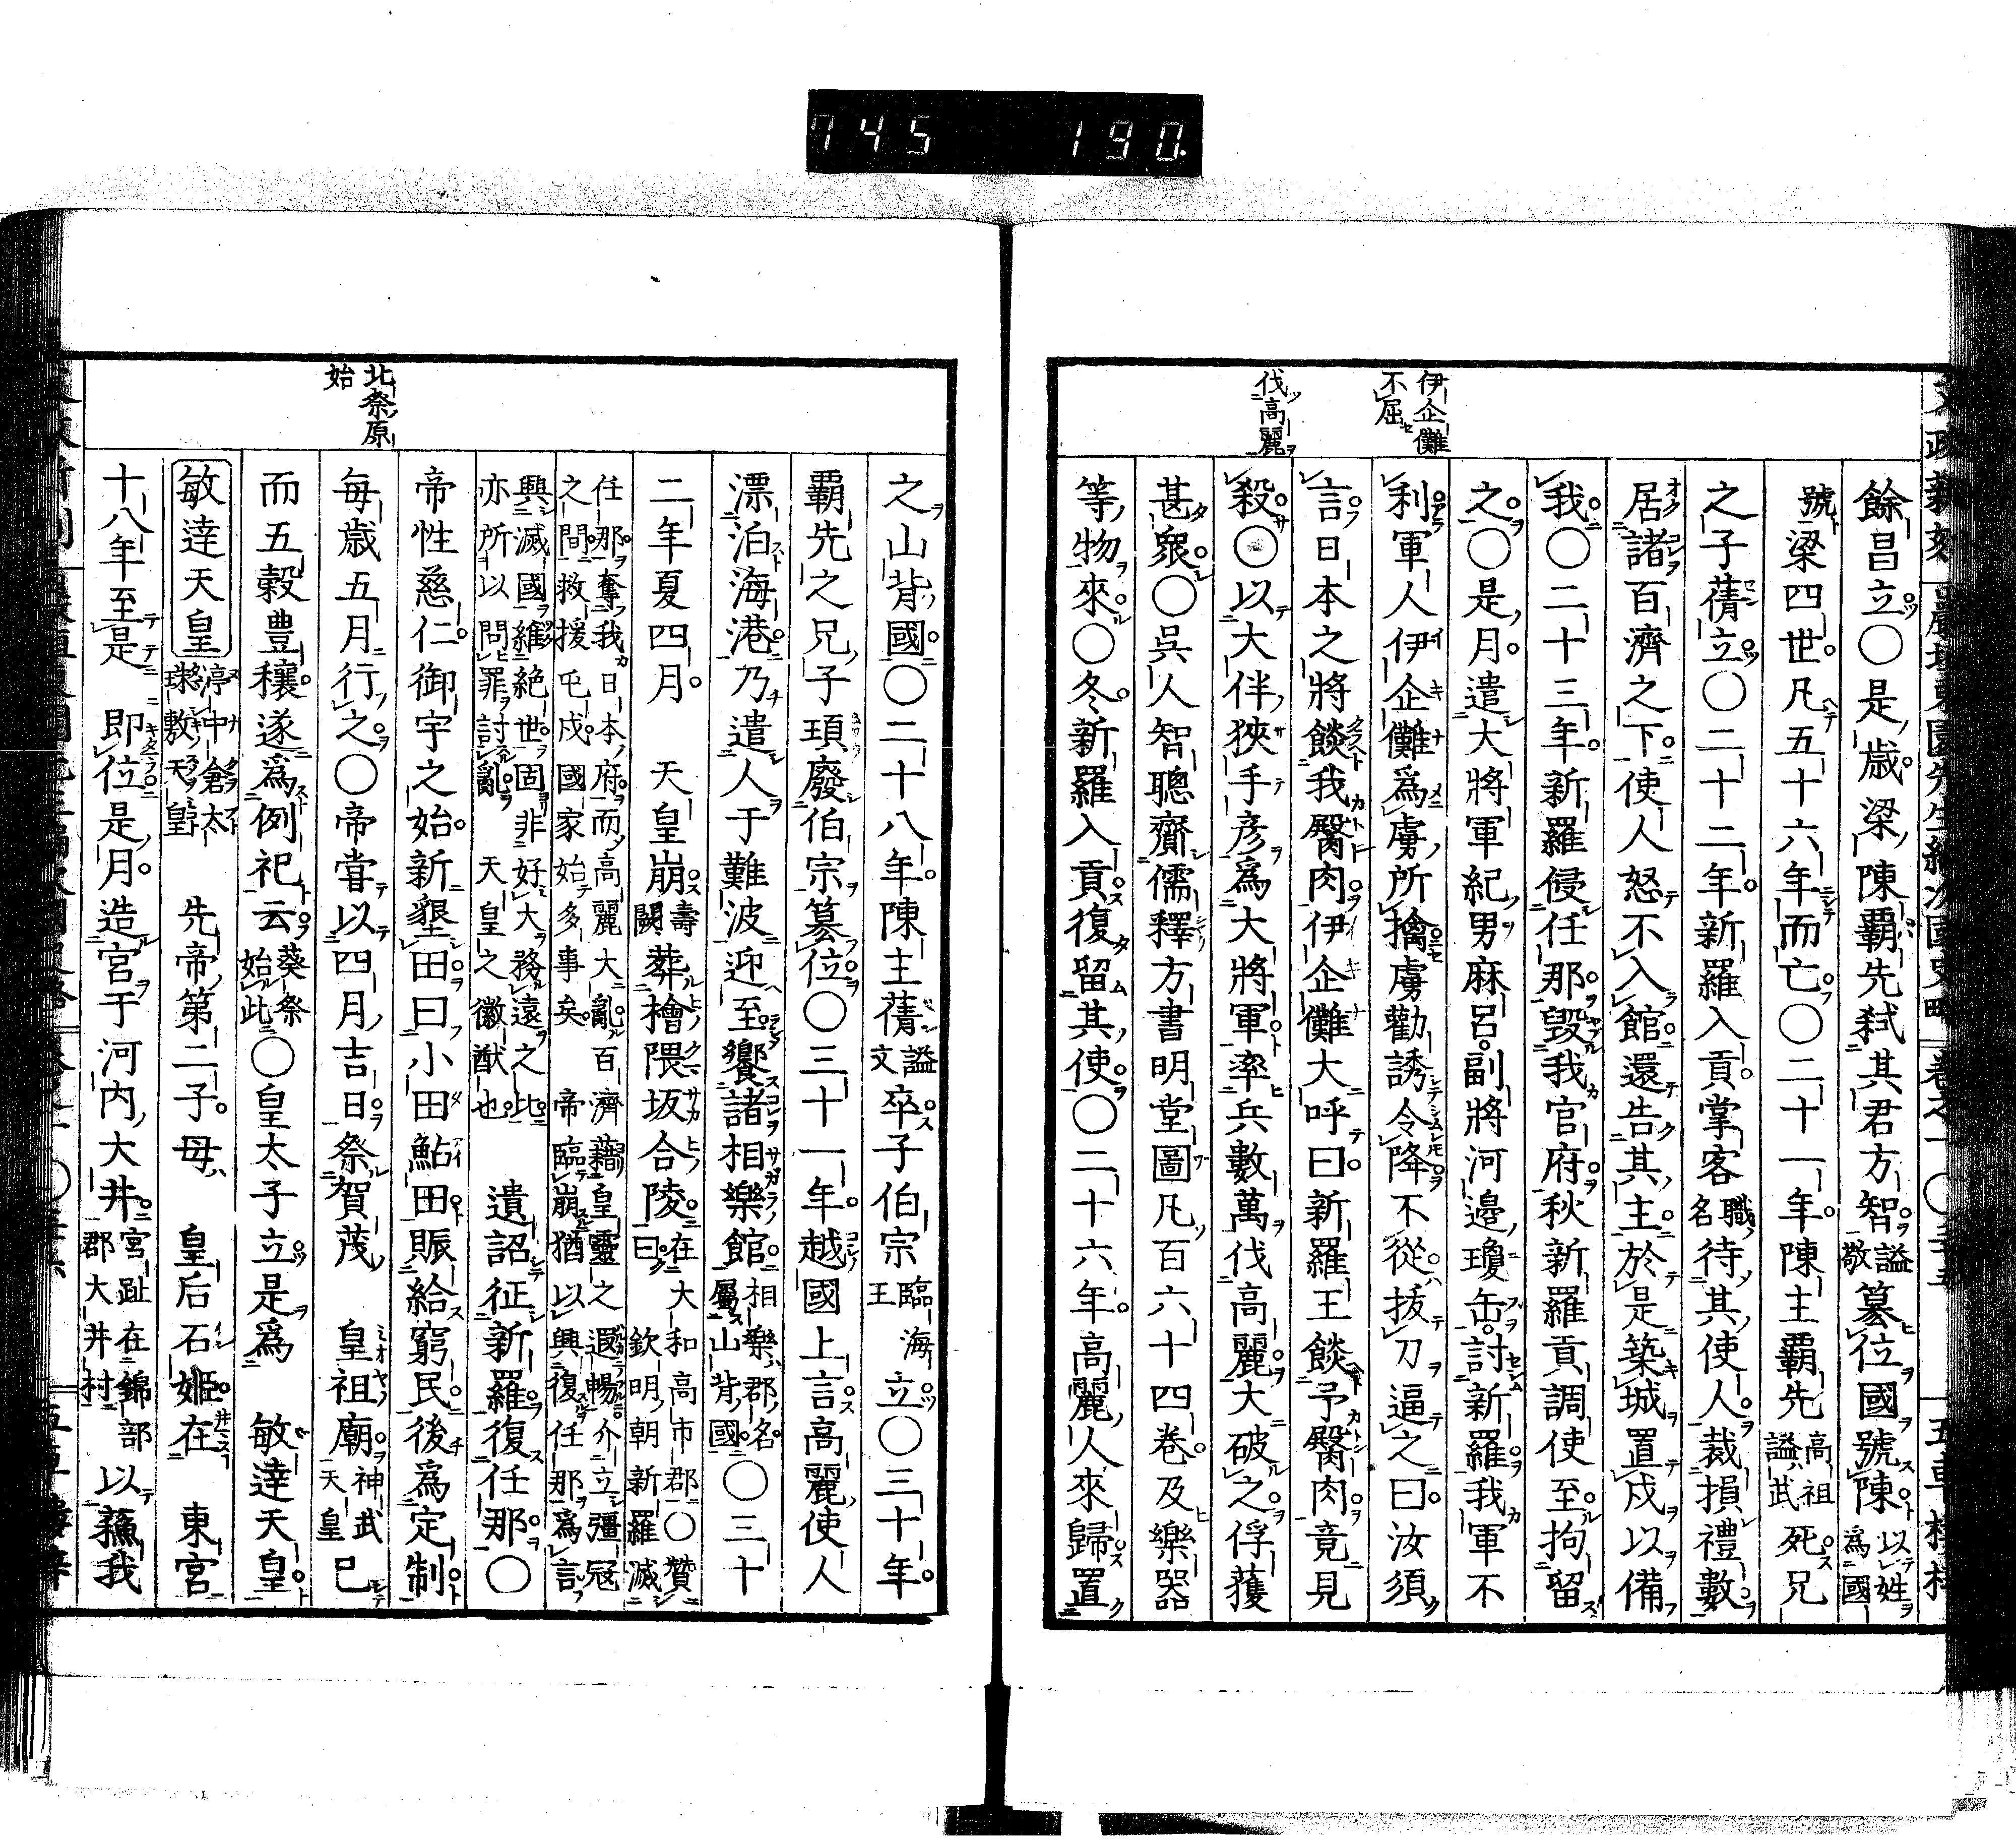 745 190
伊企儺
不屈
伐高麗
餘昌立〇是歳梁陳霸先弑其君方智謚敬簒位國號陳以姓爲國
號梁四世凡五十六年而亡〇二十一年陳主霸先高祖謚武死兄
之子蒨立〇二十二年新羅入貢掌客職名待其使人裁損禮數
居諸百濟之下使人怒不入館還告其主於是築城置戍以備
我〇二十三年新羅侵任那毀我官府秋新羅貢調使至拘留
之〇是月遣大將軍紀男麻呂副將河邊瓊缶討新羅我軍不
利軍人伊企儺爲虜所擒虜勸誘令降不從拔刀逼之曰汝須
言日本之將餤我臀肉伊企儺大呼曰新羅王餤予臀肉竟見
殺〇以大伴狹手彦爲大將軍率兵數萬伐高麗大破之俘獲
甚衆〇呉人智聰齎儒釋方書明堂圖凡百六十四卷及樂器
等物來〇冬新羅入貢復留其使〇二十六年高麗人來歸置
北祭原
始
之山背國〇二十八年陳主蒨謚文卒子伯宗臨海王立〇三十年
霸先之兄子頊廢伯宗簒位〇三十一年越國上言高麗使人
漂泊海港乃遣人于難波迎至饗諸相樂館相樂郡名屬山背國〇三十
二年夏四月 天皇崩壽闕葬檜隈坂合陵在大和高市郡〇贊曰欽明朝新羅滅
任那奪我日本府而高麗大亂百濟藉皇靈之遐暢介立彊冦
之間救援屯戍國家始多事矣 帝臨崩猶以興復任那爲言
興滅國繼絶世固非好大務遠之比
亦所以問罪討亂 天皇之徽猷也 遺詔征新羅復任那〇
帝性慈仁御宇之始新墾田曰小田鮎田賑給窮民後爲定制
毎歳五月行之〇帝嘗以四月吉日祭賀茂 皇祖廟神武天皇已
而五穀豊穰遂爲例祀云葵祭始此〇皇太子立是爲 敏達天皇
敏達天皇 渟中倉太珠敷天皇 先帝第二子母 皇后石姫在 東宮
十八年至是 即位是月造宮于河内大井宮趾在錦部郡大井村以蘓我